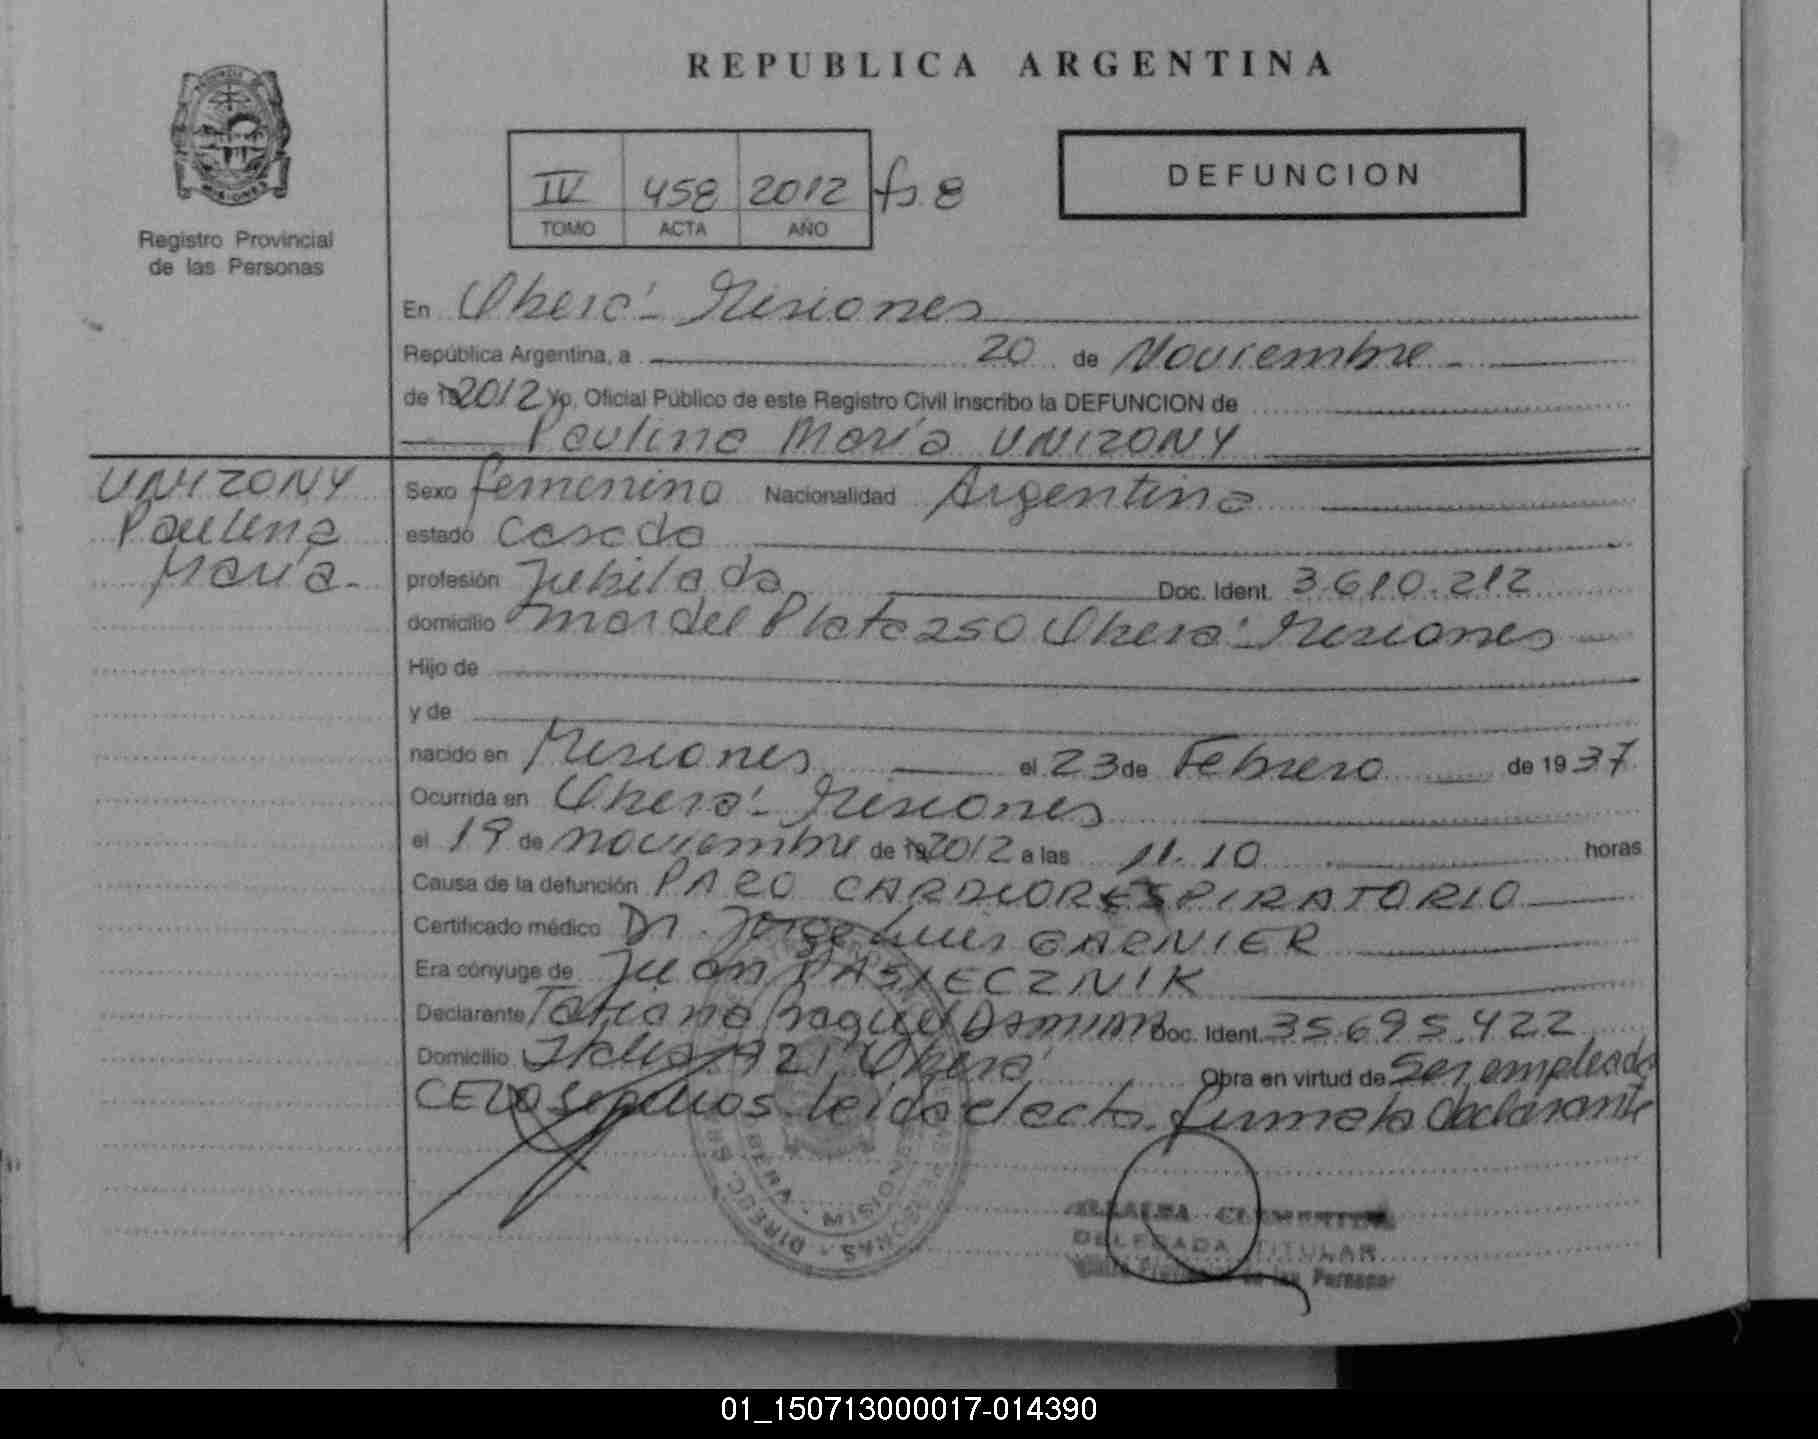 REPUBLICA ARGENTINA
IV 458 2012 fs. 8
TOMO ACTA AÑO
DEFUNCION
Registro Provincial
de las Personas
En Oberá - Misiones
República Argentina, a 20 de Noviembre
de 2012 Yo, Oficial Público de este Registro Civil inscribo la DEFUNCION de
Paulina María UNIZONY
UNIZONY
Paulina
María.
Sexo femenino Nacionalidad Argentina
estado Casada
profesión Jubilada Doc. Ident. 3.610.212
domicilio Mar del Plata 250 Oberá - Misiones
Hijo de
y de
nacido en Misiones el 23 de Febrero de 1937
Ocurrida en Oberá - Misiones
el 19 de noviembre de 2012 a las 11.10 horas
Causa de la defunción PARO CARDIORESPIRATORIO
Certificado médico Dr. Jorge Luis GARNIER
Era cónyuge de Juan PASIECZNIK
Declarante Tatiana Raquel Doc. Ident. 35.695.422
Domicilio Oberá Obra en virtud de Ser empleada
CELO Sepelios leida el acta firma la declarante
MISIONES
DELEGADA TITULAR
de las Personas
01_150713000017-014390